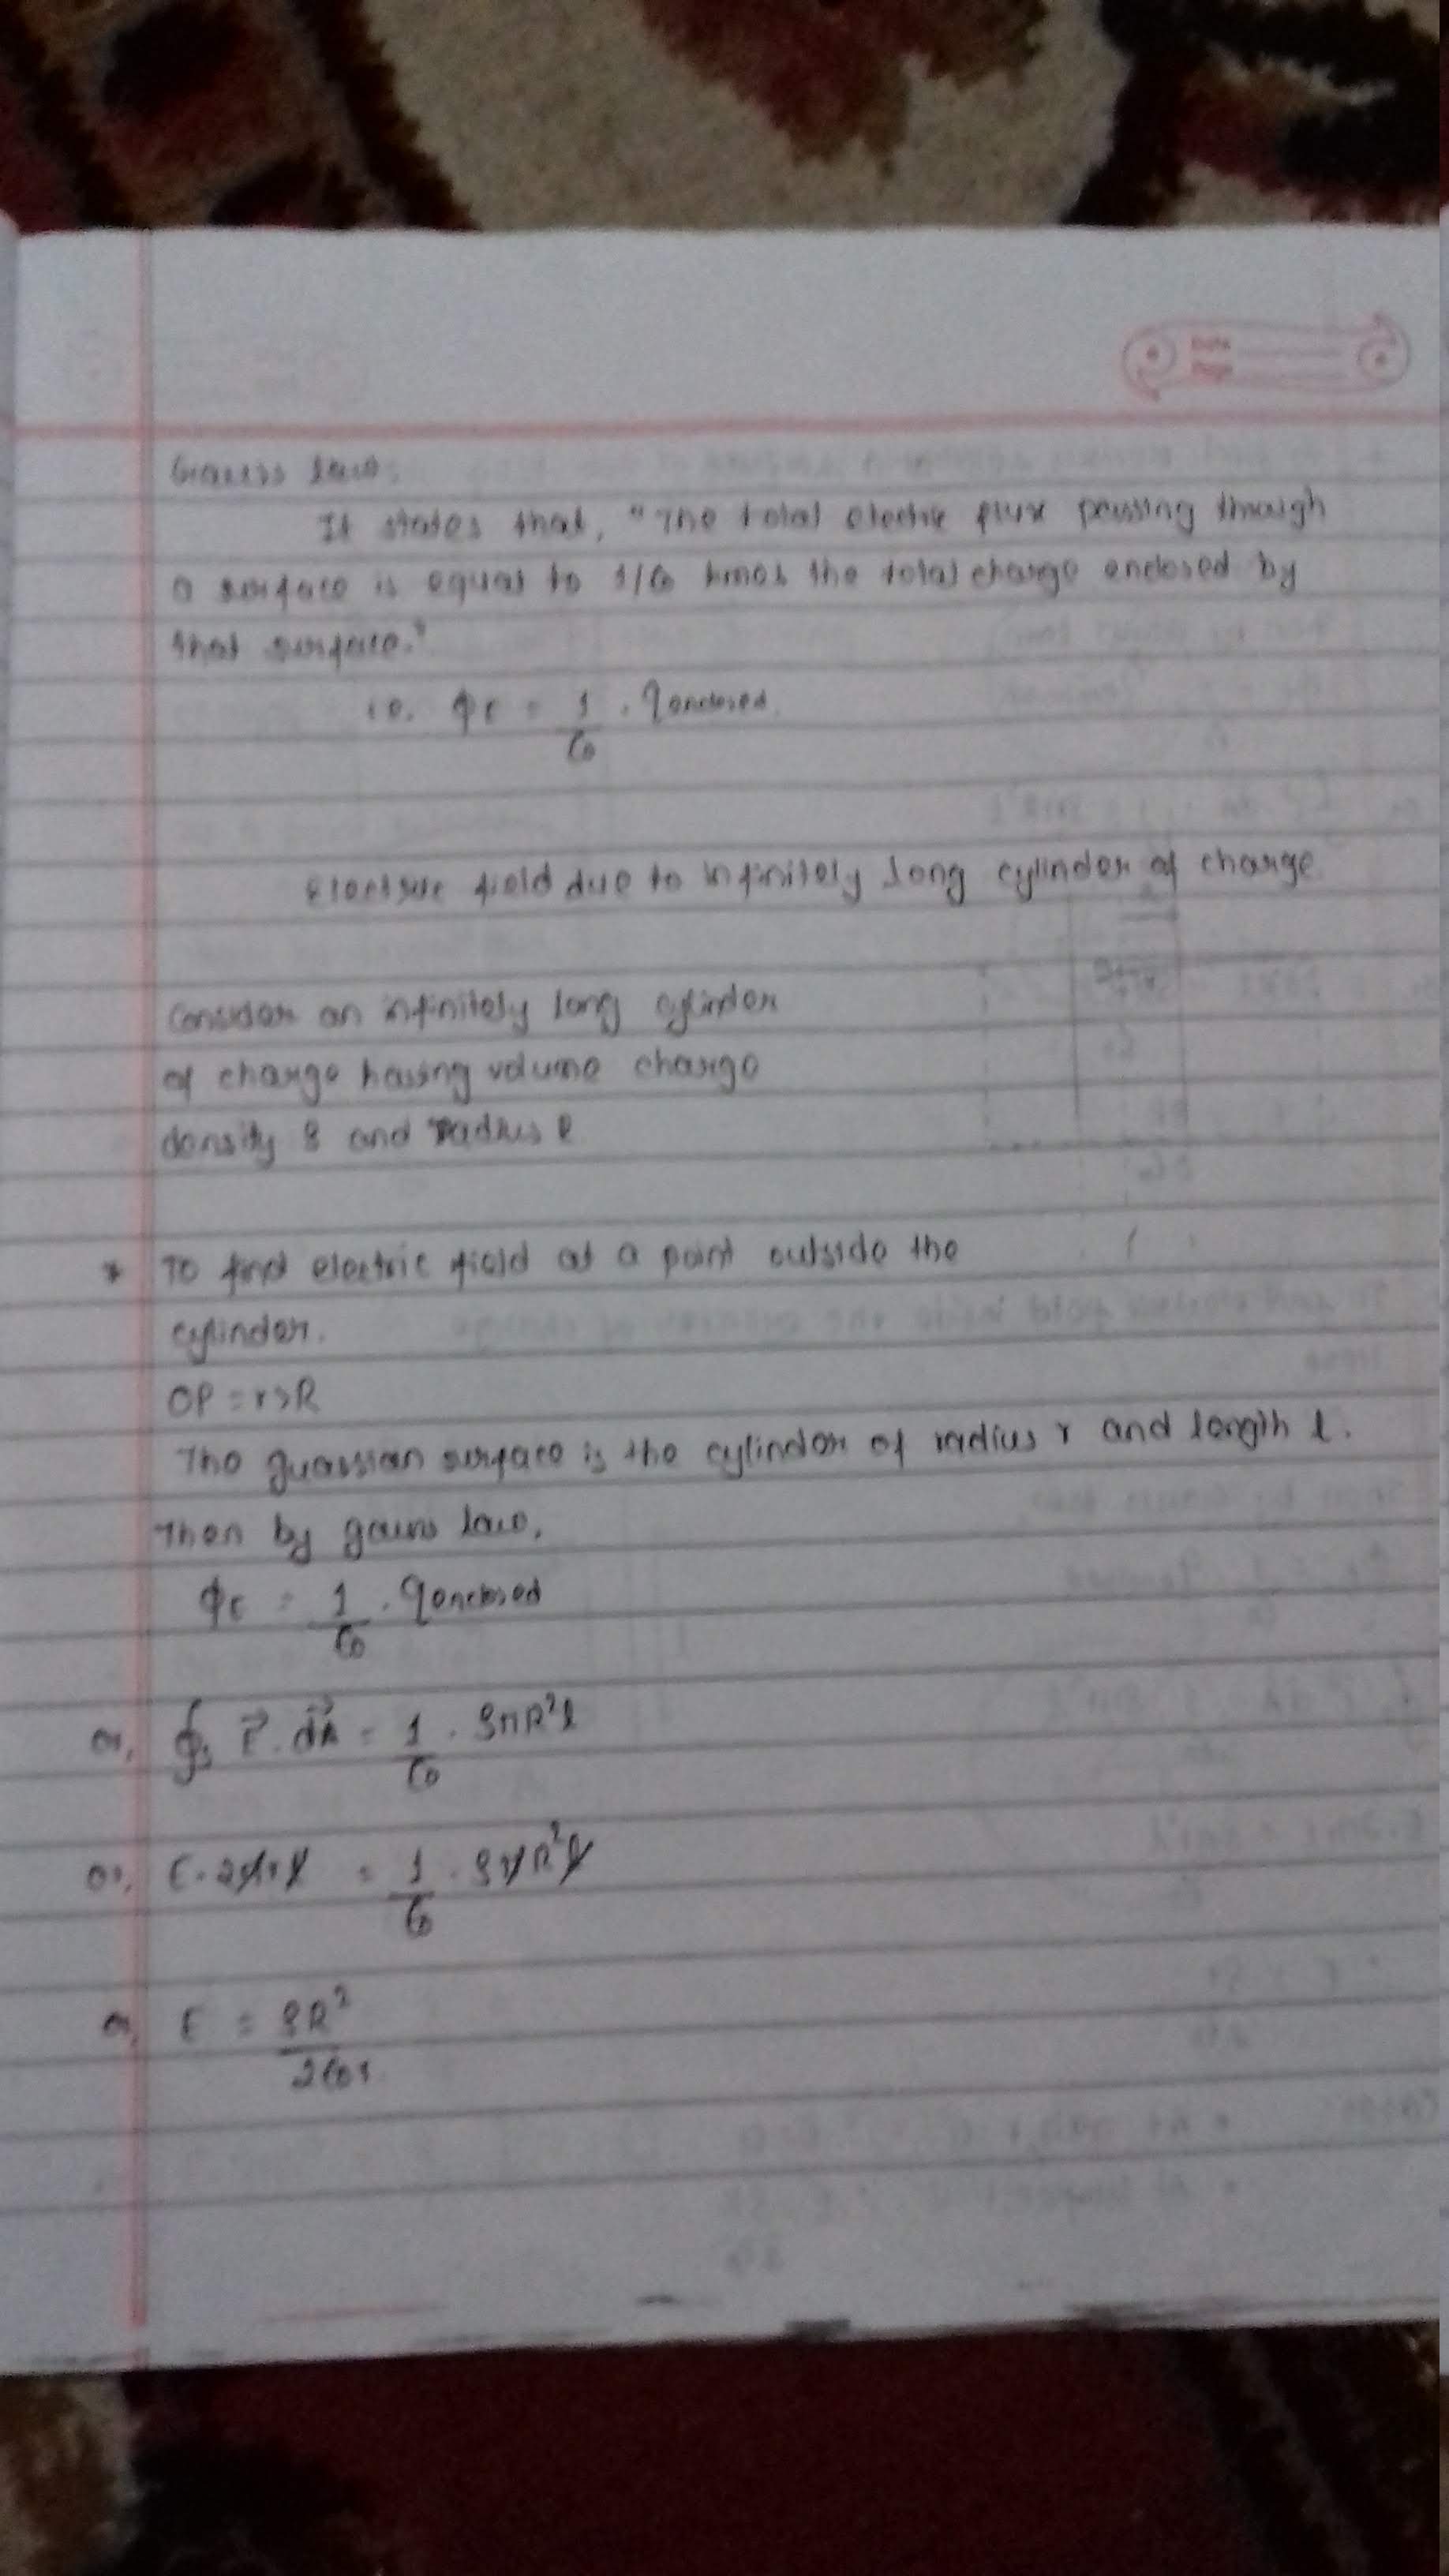 Gauss law.
It states that, "The total electric flux passing through
a surface is equal to 1/ϵ₀ times the total charge enclosed by
that surface."
i.e. ϕE = 1/ϵ₀ . qenclosed.
Electric field due to infinitely long cylinder of charge
Consider an infinitely long cylinder
of charge having volume charge
density ρ and radius R
* To find electric field at a point outside the
cylinder.
OP = r>R
The guassian surface is the cylinder of radius r and length l.
Then by gauss law,
ϕE = 1/ϵ₀ . qenclosed
or, ∮s E⃗.dA⃗ = 1/ϵ₀ . ρπR²l
or, E.2πrl = 1/ϵ₀ . ρπR²l
or, E = ρR²/2ϵ₀r
Date
Page